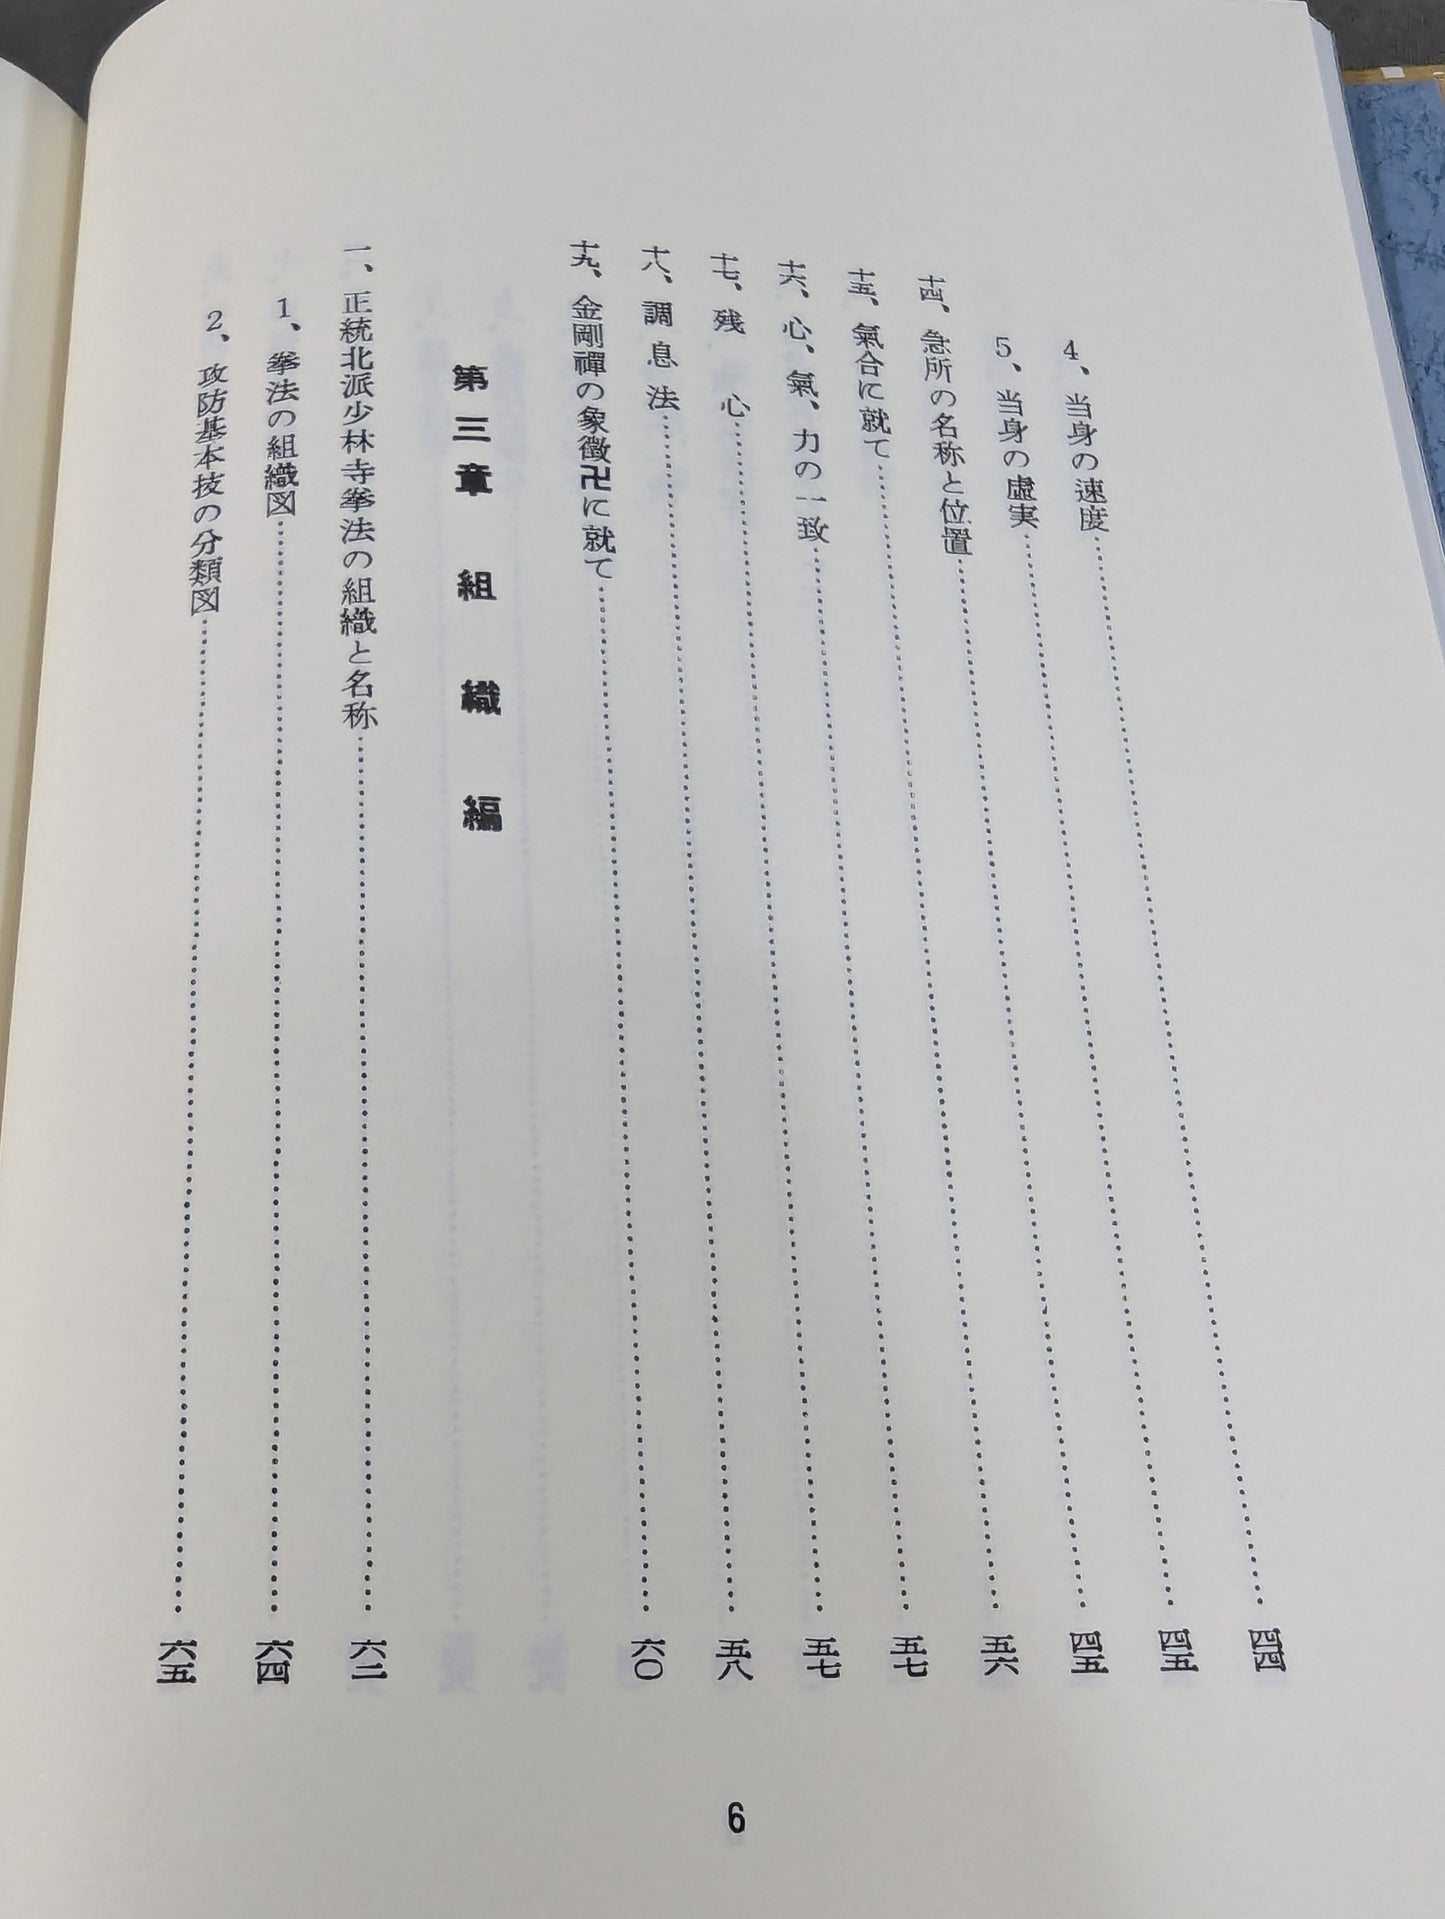 4、当身の速度……四四
5、当身の虚実……四五
十四、急所の名称と位置……四五
十五、氣合に就て……五六
十六、心、氣、力の一致……五七
十七、残心……五七
十八、調息法……五八
十九、金剛禪の象徴卍に就て……六〇
第三章 組織編
一、正統北派少林寺拳法の組織と名称……六二
1、拳法の組織図……六四
2、攻防基本技の分類図……六五
6